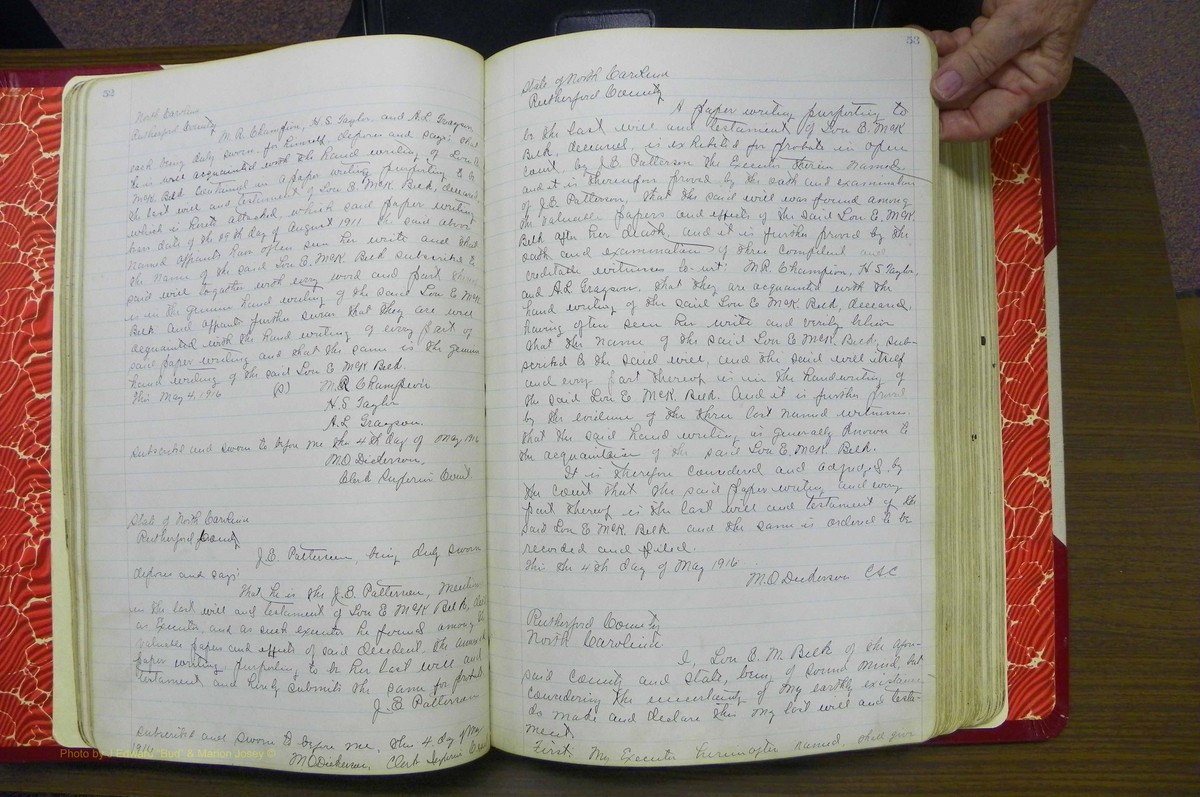 52
North Carolina
Rutherford County
M.R. Champion, H.S. Taylor and A.L. Grayson,
each being duly sworn for himself, deposes and says: that
he is well acquainted with the hand writing of Lou E.
McK Belk contained in a paper writing purporting to be
the last will and testament of Lou E. McK Belk, deceased,
which is hereto attached, which said paper writing
bears date of the 29th day of August 1911. The said above
named affiants have often seen her write and that
the name of the said Lou E. McK Belk subscribed to
said will together with every word and part
is in the genuine hand writing of the said Lou E. McK
Belk and affiants further swear that they are well
acquainted with the hand writing of every part of
said paper writing and that the same is the genuine
hand writing of the said Lou E. McK Belk.
This May 4, 1916
M.R. Champion
H.S. Taylor
A.L. Grayson.
Subscribed and sworn to before me this 4th day of May 1916
M.O. Dickerson,
Clerk Superior Court.
State of North Carolina
Rutherford County
J.E. Patterson, being duly sworn
deposes and says:
That he is the J.E. Patterson, mentioned
in the last will and testament of Lou E McK Belk,
as Executor, and as such executor he found among the
valuable papers and effects of said decedent the annexed
paper writing, purporting to be her last will and
testament and hereby submits the same for probate.
J.E. Patterson
Subscribed and sworn to before me, this 4. day of May
M.O. Dickerson, Clerk Superior Court
53
State of North Carolina
Rutherford County
A paper writing purporting to
be the last will and testament of Lou E. McK
Belk, deceased, is exhibited for probate in open
court, by J.E. Patterson the Executor therein named
and it is thereupon proved by the oath and examination
of J.E. Patterson, that the said will was found among
the valuable papers and effects of the said Lou E. McK.
Belk after her death, and it is further proved by the
oath and examination of three competent and
creditable witnesses to-wit: M.R. Champion, H.S. Taylor,
and A.L. Grayson, that they are acquainted with the
hand writing of the said Lou E McK. Belk, deceased,
having often seen her write and verily believe
that the name of the said Lou E McK. Belk, sub-
scribed to the said will, and the said will itself
and every part thereof is in the handwriting of
the said Lou E McK. Belk. And it is further proved
by the evidence of the three last named witnesses
that the said hand writing is generally known to
the acquaintance of the said Lou E. McK. Belk.
It is therefore considered and adjudged by
the court that the said paper writing and every
part thereof is the last will and testament of the
said Lou E McK. Belk and the same is ordered to be
recorded and filed.
This the 4th day of May 1916
M.O. Dickerson CSC
Rutherford County
North Carolina
I, Lou E. M. Belk of the afore-
said County and State, being of sound mind, but
considering the uncertainty of my earthly existence
do make and declare this my last will and testa-
ment
First. My Executor hereinafter named, shall give
Photo by J Edward "Bud" & Marion Josey ©